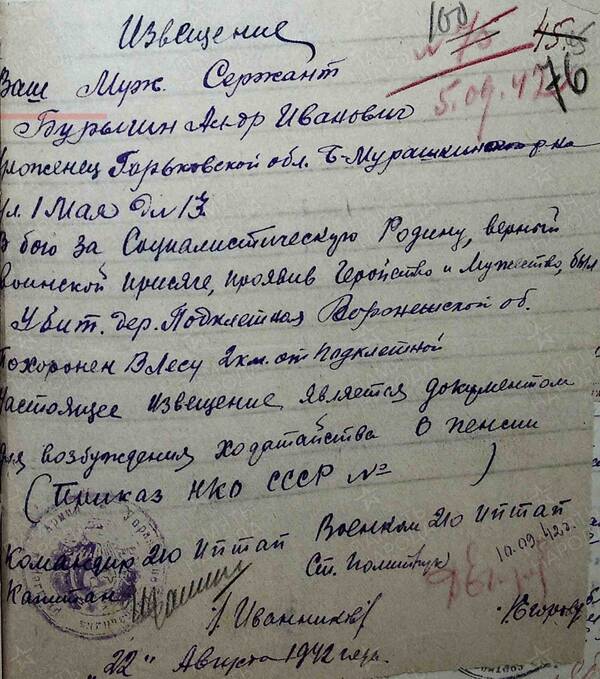 Извещение
100
№ 76
45.
76
5.09.42
Ваш Муж. Сержант
Бурыгин Алдр Иванович
уроженец Горьковской обл. Б-Мурашкинского р-на
ул. 1 Мая Дом 13.
В бою за Социалистическую Родину, верный
воинской присяге, проявив Геройство и Мужество, был
Убит. дер. Подклетная Воронежской об.
Похоронен В лесу 2 км. от Подклетной
Настоящее извещение является документом
для возбуждения ходатайства о пенсии
(Приказ НКО СССР № )
Командир 210 иптап Военком 210 иптап
Капитан Ст. Политрук
10.09.42г.
/Иванников/ /Егоров/
"22" Августа 1942 года.